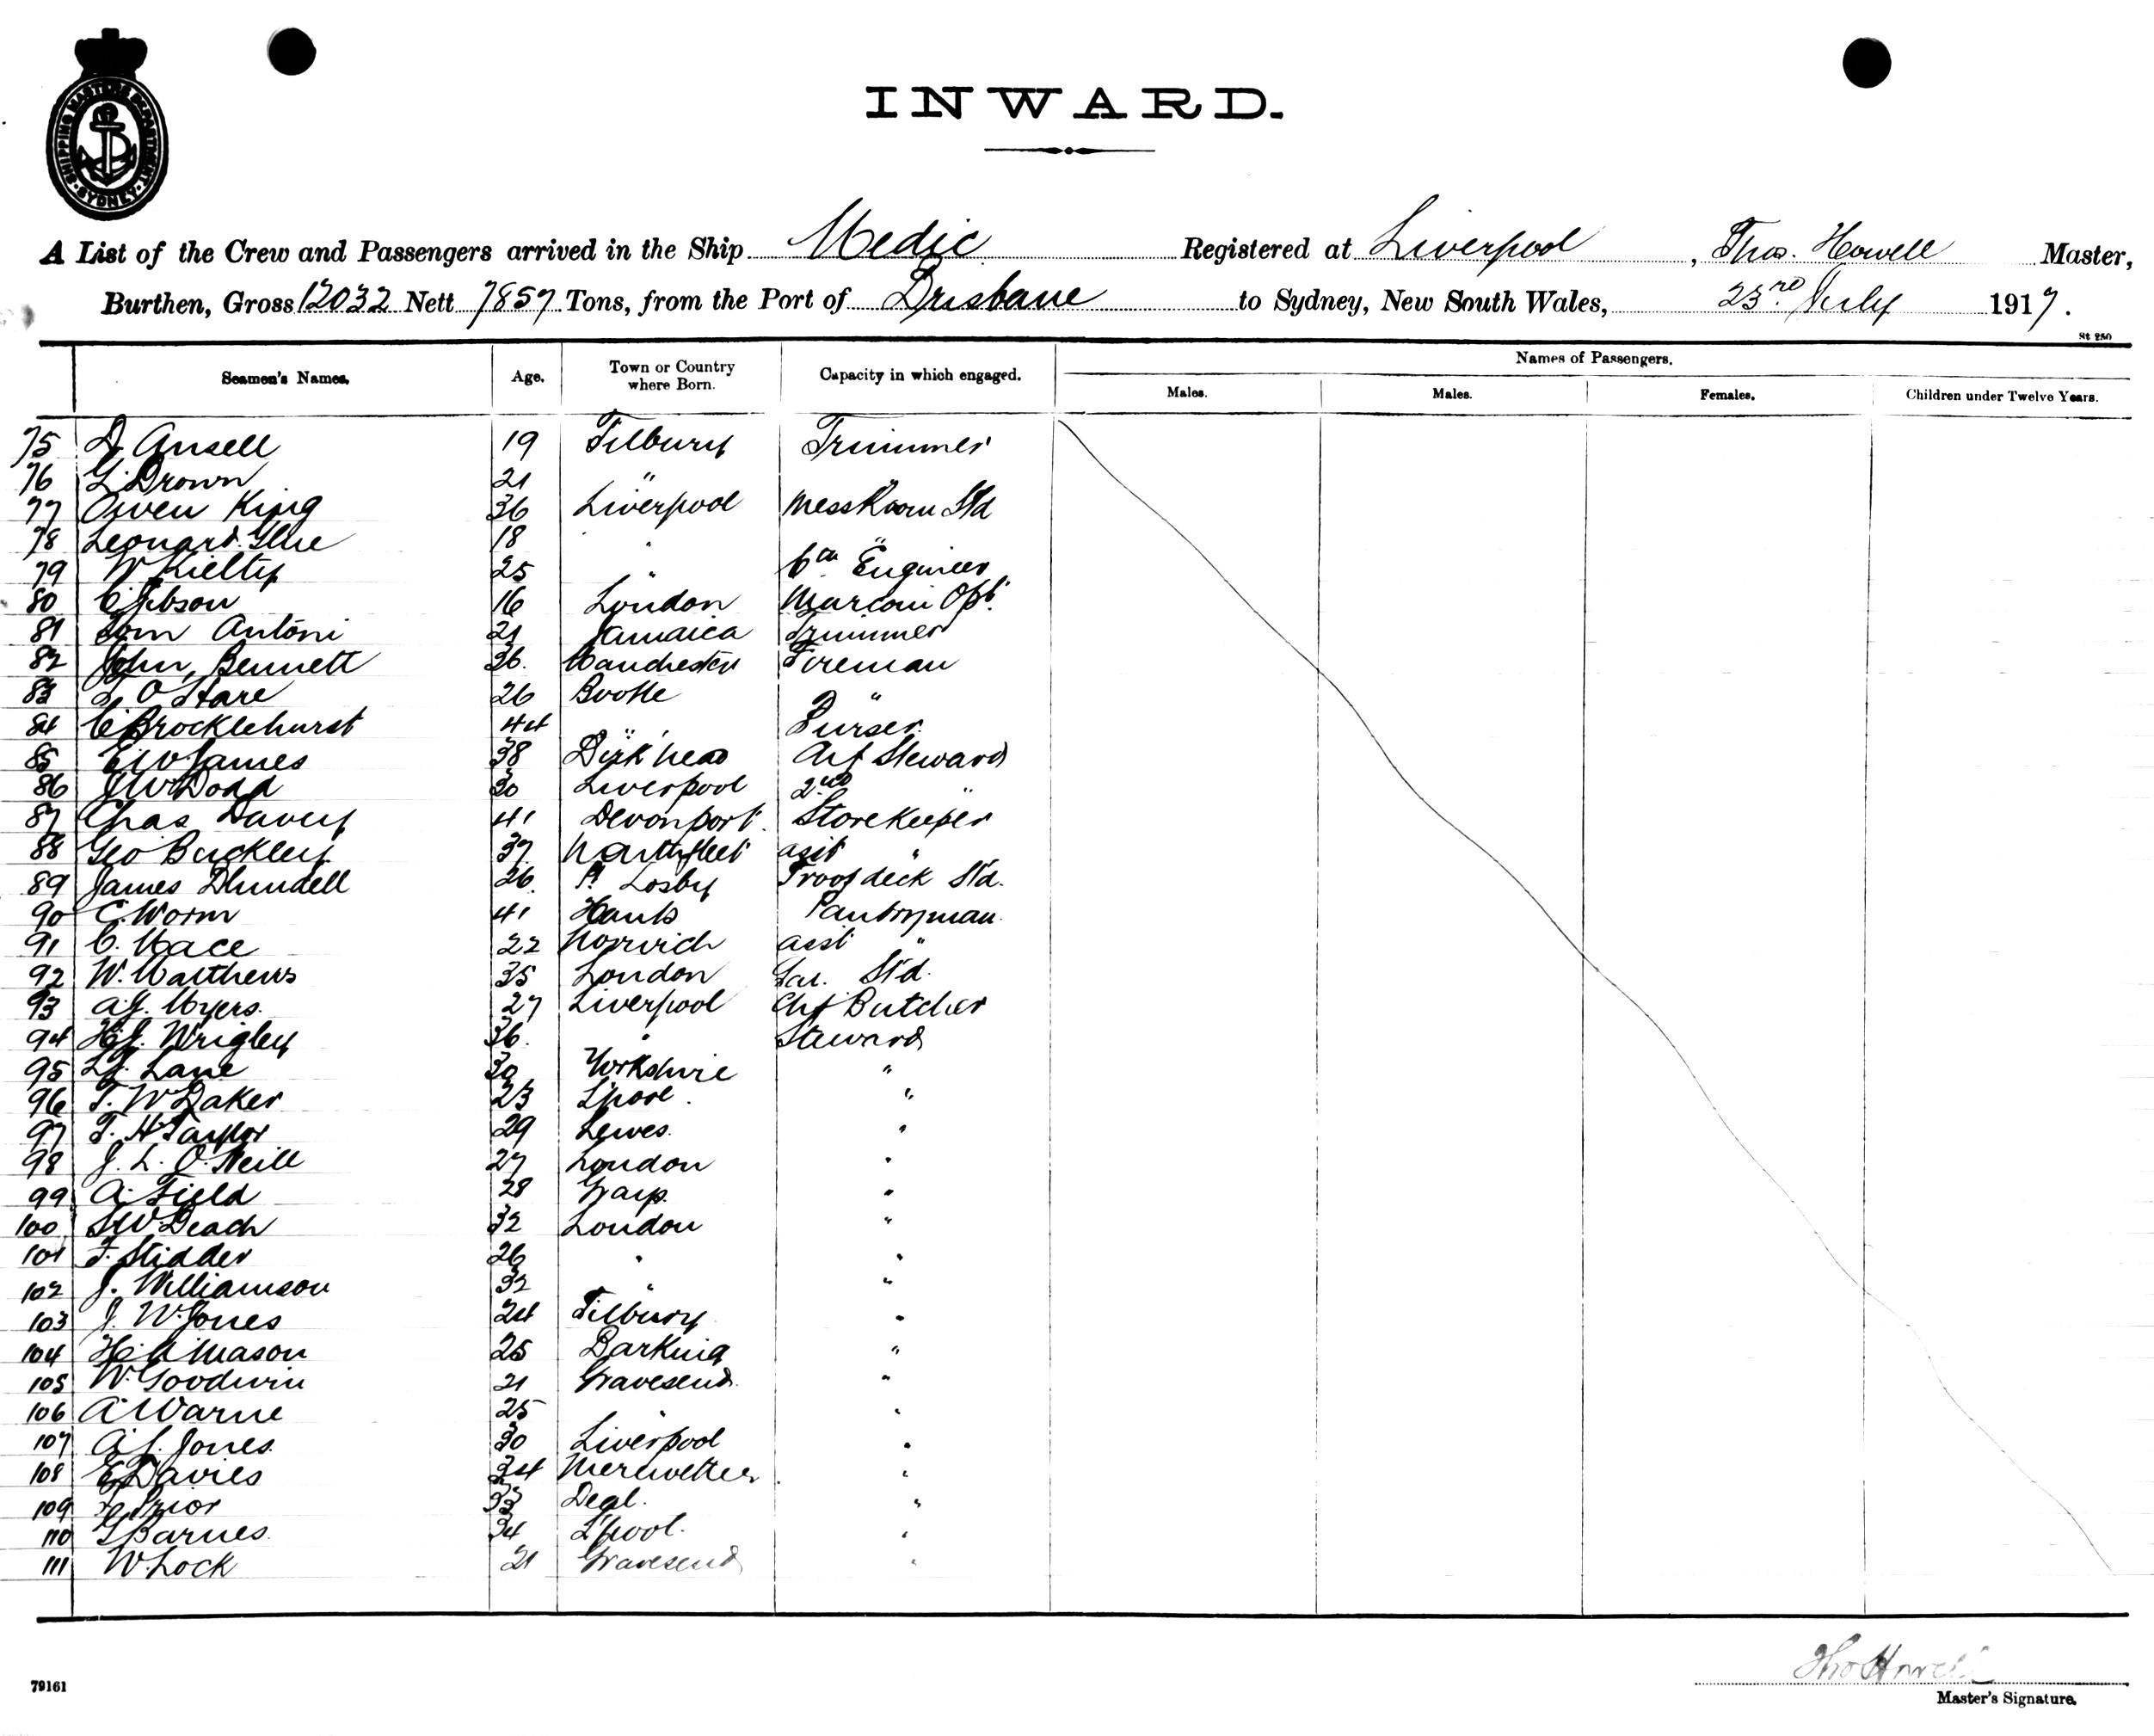 SHIPPING MASTER'S DEPARTMENT · SYDNEY ·
INWARD.
A List of the Crew and Passengers arrived in the Ship Medic Registered at Liverpool, Thos. Howell Master,
Burthen, Gross 12032 Nett 7857 Tons, from the Port of Brisbane to Sydney, New South Wales, 23rd July 1917.
St 250
Seamen's Names. Age. Town or Country where Born. Capacity in which engaged. Names of Passengers.
Males. Males. Females. Children under Twelve Years.
75 D. Ansell 19 Tilbury Trimmer
76 G. Brown 21 " "
77 Owen King 36 Liverpool Mess Room Std
78 Leonard Glue 18 " "
79 W Kielty 25 " 6th Engineer
80 C. Jebson 16 London Marconi Opt.
81 Tom Antoni 21 Jamaica Trimmer
82 John Bennett 36. Manchester Fireman
83 O'Hare 26 Bootle "
84 C Brocklehurst 44 " Purser
85 E. W. James 38 Birk'head Chf Steward
86 J W Dodd 30 Liverpool 2nd "
87 Chas Davey 41 Devonport. Storekeeper
88 Geo Buckley. 37. Northfleet asst "
89 James Blundell 26. Losby Troop deck Std.
90 C. Worm 41 Hants Pantryman
91 C. Mace 22 Norwich asst "
92 W. Matthews 35 London Std.
93 A.J. Myers. 27 Liverpool Chf Butcher
94 H.J. Wrigley 36. " Steward
95 Lane 30 Yorkshire "
96 T. W Baker 23 L'pool. "
97 T. H Taylor 29 Lewes. "
98 J. L. O'Neill 27 London "
99 A. Field 28 Grays. "
100 S W Beach 32 London "
101 F. Stidder 26 " "
102 J. Williamson 32 " "
103 J. W. Jones 24 Tilbury "
104 H. Mason 25 Barking "
105 W. Goodwin 21 Gravesend. "
106 A. Warne 25 " "
107 A. J. Jones. 30 Liverpool "
108 E Davies 34 "
109 Prior 33 Deal. "
110 G Barnes. 34 L'pool. "
111 W. Lock 21 Gravesend "
79161
Tho Howell
Master's Signature.